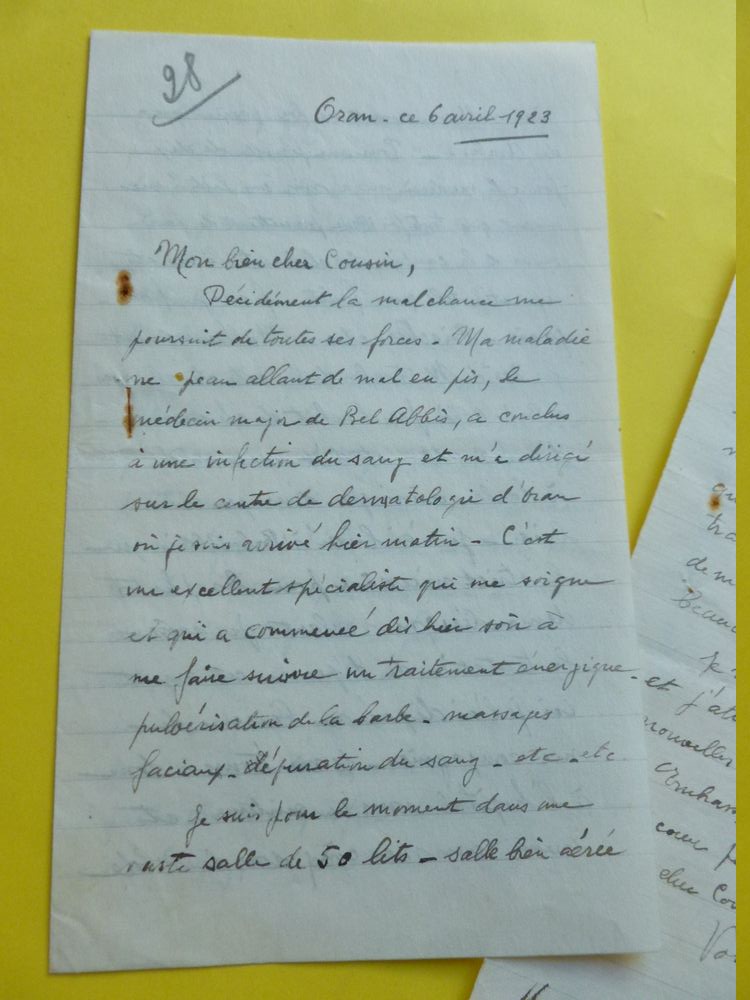 98
Oran - ce 6 avril 1923
Mon bien cher Cousin,
Décidément la malchance me
poursuit de toutes ses forces - Ma maladie
de peau allant de mal en pis, le
médecin major de Bel Abbès, a conclus
à une infection du sang et m'a dirigé
sur le centre de dermatologie d'Oran
où je suis arrivé hier matin - C'est
un excellent spécialiste qui me soigne
et qui a commencé dès hier soir à
me faire suivre un traitement énergique -
pulvérisation de la barbe - massages
faciaux - dépuration du sang - etc - etc
Je suis pour le moment dans une
vaste salle de 50 lits - salle bien aérée
qu
tra
de m
Je
et j'at
nouvelles
cœur p
cher Cou